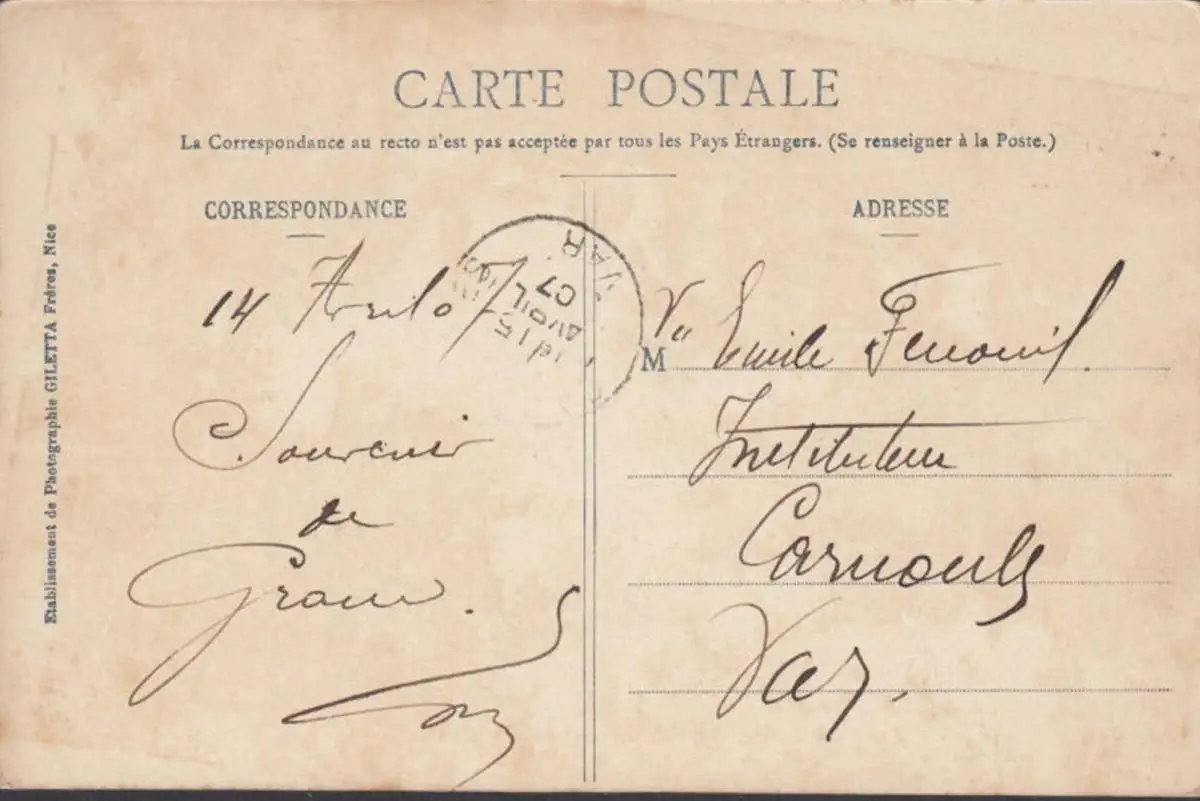 CARTE POSTALE
La Correspondance au recto n'est pas acceptée par tous les Pays Étrangers. (Se renseigner à la Poste.)
CORRESPONDANCE
14 Avril 07
Souvenir
de
ADRESSE
M Emile Fenouil
Instituteur
Carnoules
Var.
15
AVRIL
07
VAR
Etablissement de Photographie GILETTA Frères, Nice